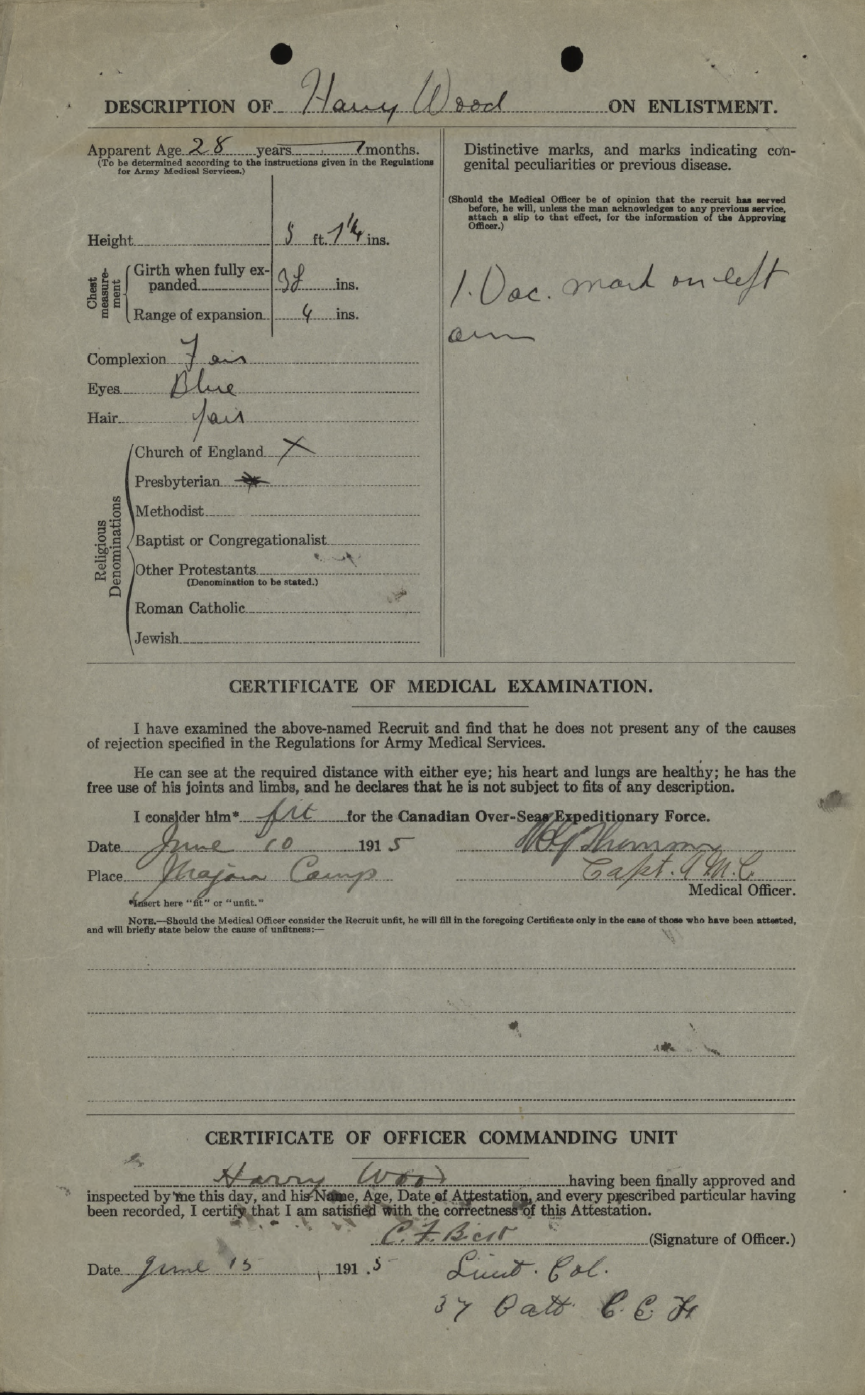 DESCRIPTION OF Harry Wood ON ENLISTMENT.
Apparent Age 28 years 7 months.
(To be determined according to the instructions given in the Regulations
for Army Medical Services.)
Height 5 ft. 7¼ ins.
Chest
measure-
ment
Girth when fully ex-
panded 38 ins.
Range of expansion 4 ins.
Complexion Fair
Eyes Blue
Hair fair
Religious
Denominations
Church of England X
Presbyterian
Methodist
Baptist or Congregationalist
Other Protestants
(Denomination to be stated.)
Roman Catholic
Jewish
Distinctive marks, and marks indicating con-
genital peculiarities or previous disease.
(Should the Medical Officer be of opinion that the recruit has served
before, he will, unless the man acknowledges to any previous service,
attach a slip to that effect, for the information of the Approving
Officer.)
1. Vac. mark on left
arm
CERTIFICATE OF MEDICAL EXAMINATION.
I have examined the above-named Recruit and find that he does not present any of the causes
of rejection specified in the Regulations for Army Medical Services.
He can see at the required distance with either eye; his heart and lungs are healthy; he has the
free use of his joints and limbs, and he declares that he is not subject to fits of any description.
I consider him* fit for the Canadian Over-Seas Expeditionary Force.
Date June 10 1915
Place Niagara Camp Capt. A.M.C.
Medical Officer.
*Insert here "fit" or "unfit."
NOTE.—Should the Medical Officer consider the Recruit unfit, he will fill in the foregoing Certificate only in the case of those who have been attested,
and will briefly state below the cause of unfitness:—
CERTIFICATE OF OFFICER COMMANDING UNIT
Harry Wood having been finally approved and
inspected by me this day, and his Name, Age, Date of Attestation, and every prescribed particular having
been recorded, I certify that I am satisfied with the correctness of this Attestation.
C. F. Bick (Signature of Officer.)
Date June 15 1915 Lieut. Col.
37 Batt C. E. F.